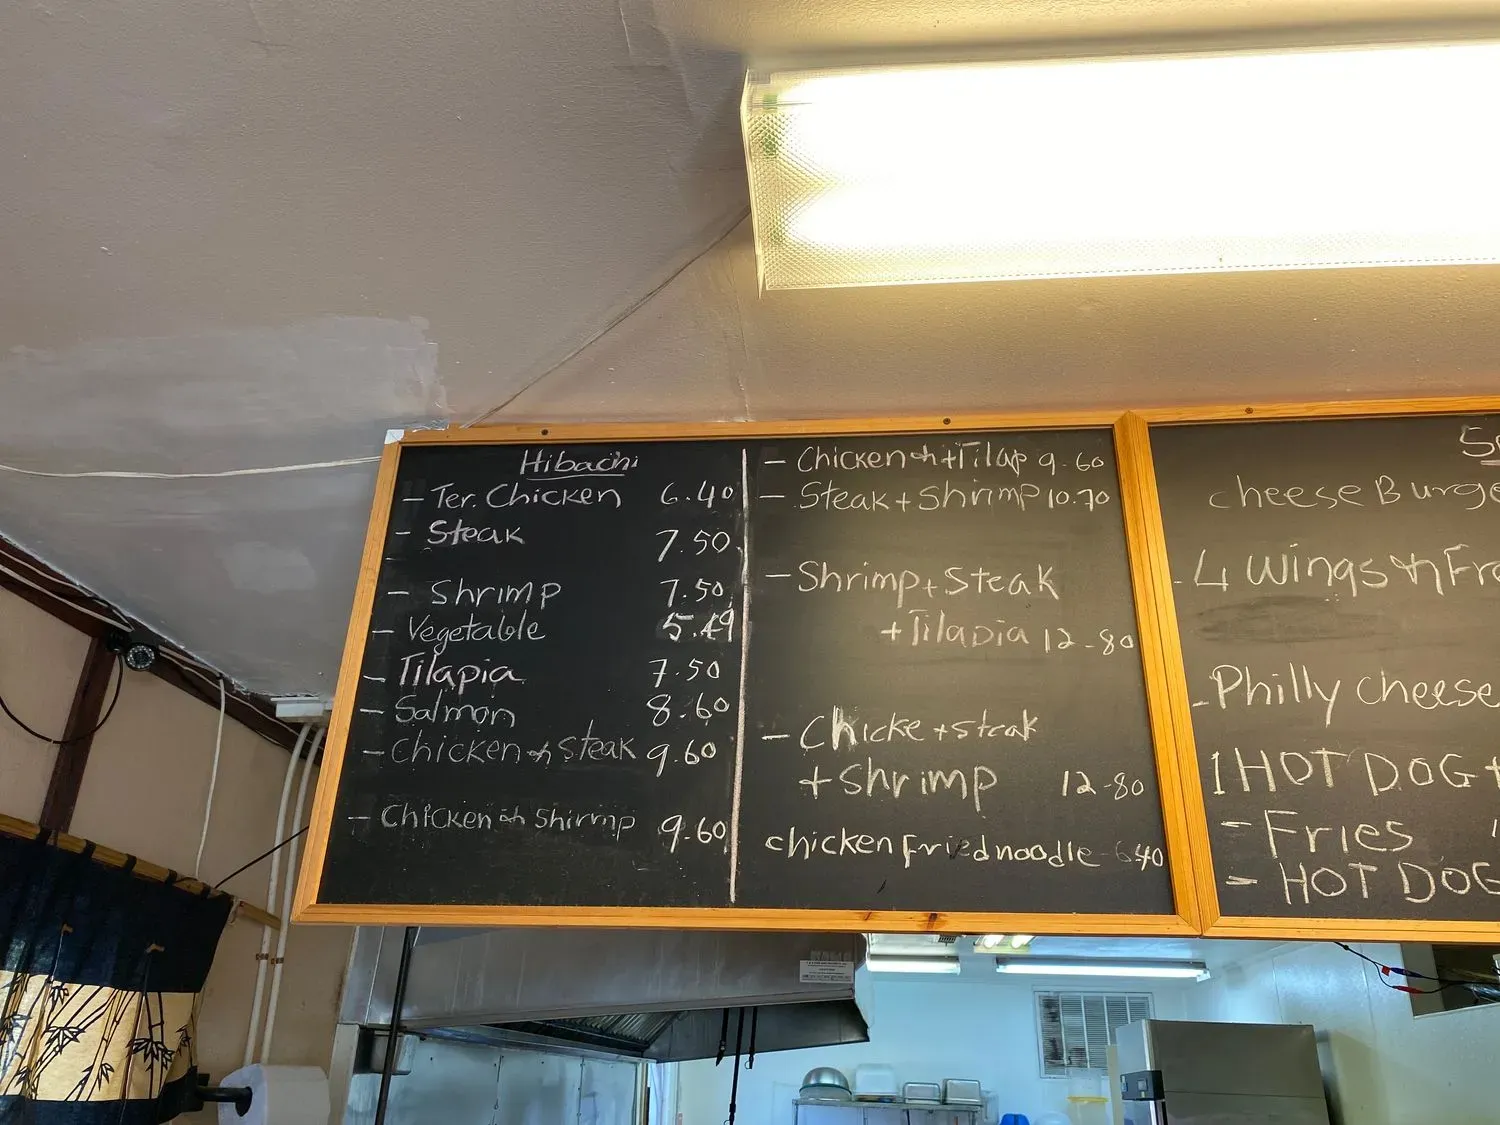 Hibachi
- Ter. Chicken 6.40
- Steak 7.50
- Shrimp 7.50
- Vegetable 5.49
- Tilapia 7.50
- Salmon 8.60
- Chicken + Steak 9.60
- Chicken + Shirmp 9.60
- Chicken + Tilap 9.60
- Steak + Shrimp 10.70
- Shrimp + Steak
+ Tilapia 12-80
- Chicke + steak
+ Shrimp 12-80
chicken Fried noodle 6.40
cheese Burge
- 4 Wings + Fr
- Philly cheese
1 HOT DOG +
- Fries
- HOT DOG